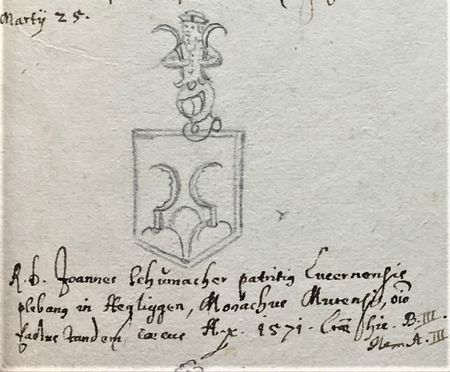 Martij 25.
R. D. Joannes Schümacher patritiꝰ Lucernensis
plebanꝰ in Hegliggen, Monachus Murensis,
factus tandem, caecus 1571. hic. B. III.
Item A. III.